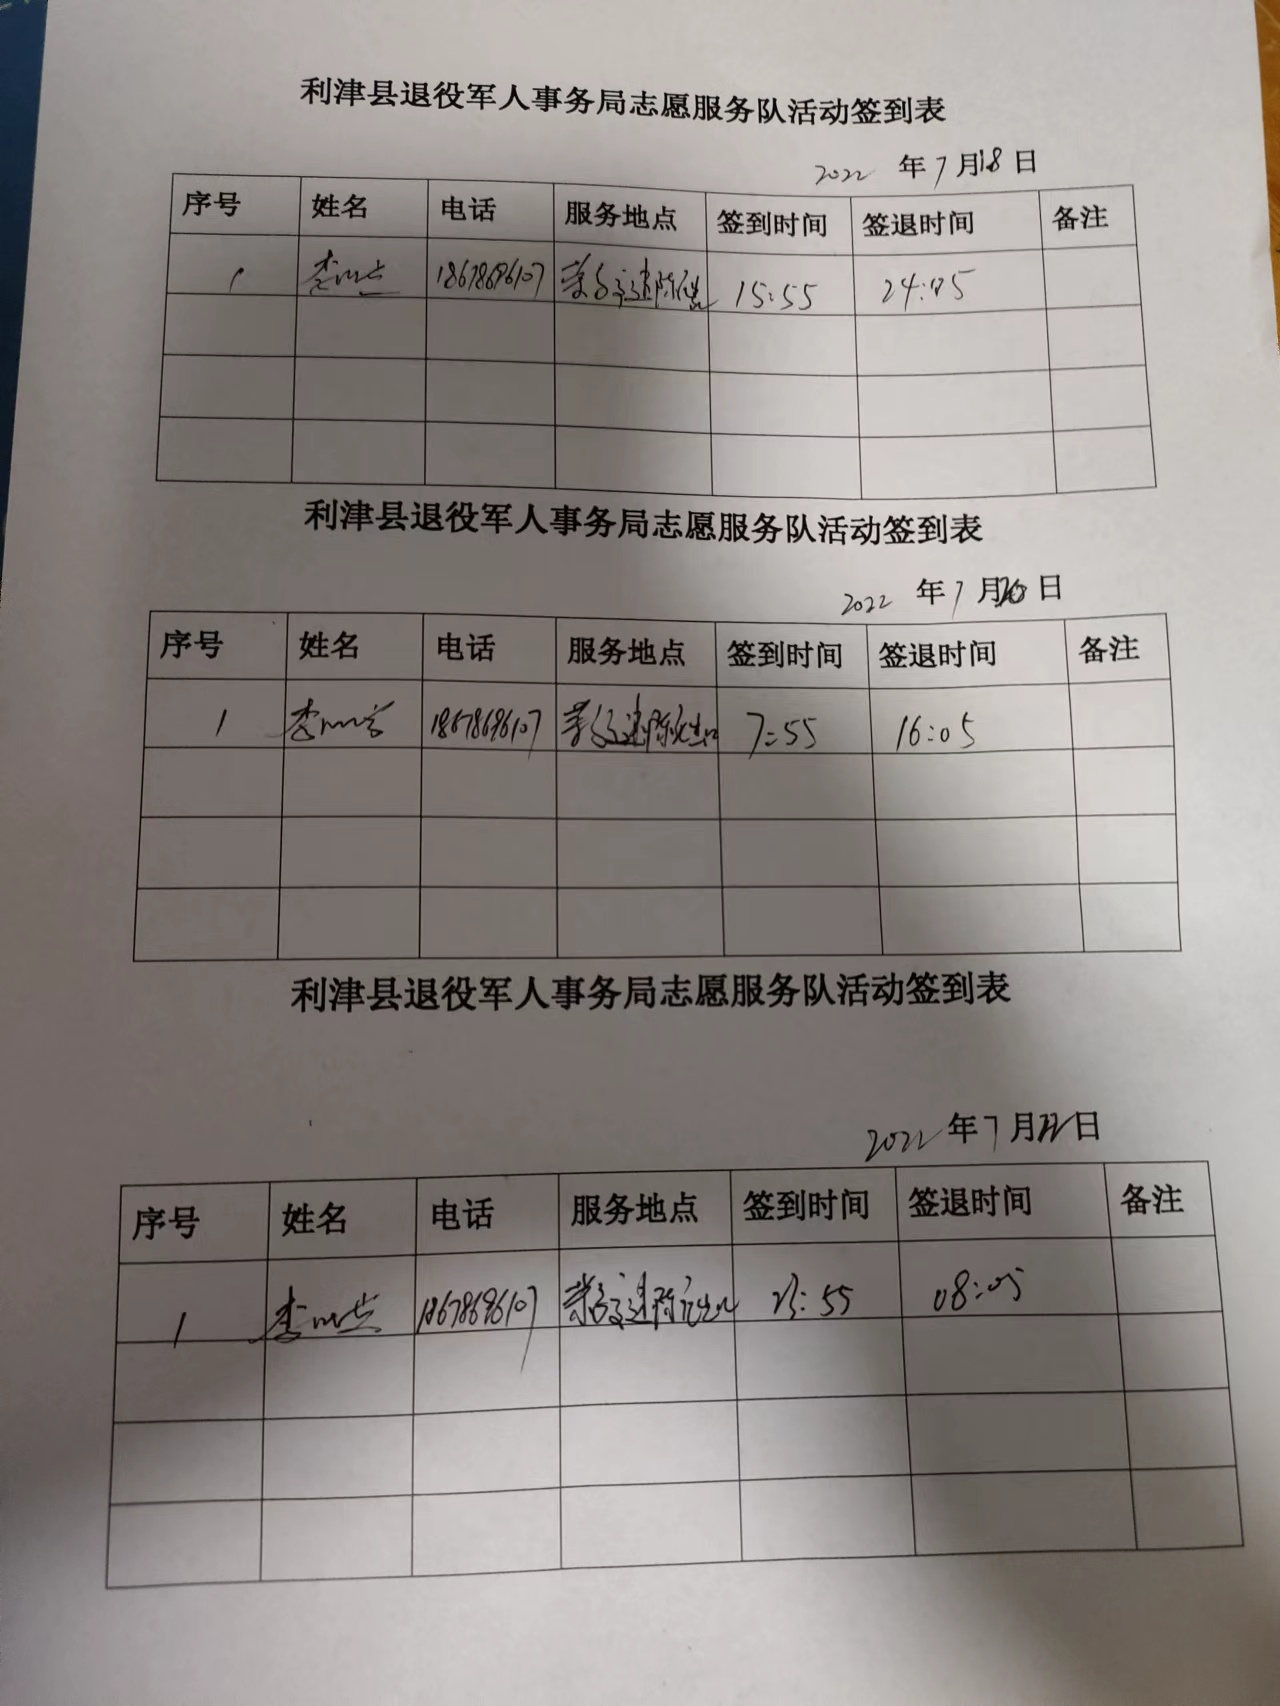 利津县退役军人事务局志愿服务队活动签到表
2022 年7月18日
序号 姓名 电话 服务地点 签到时间 签退时间 备注
1 李 18678696107 荣乌高速陈庄出口 15:55 24:05
利津县退役军人事务局志愿服务队活动签到表
2022 年7月20日
序号 姓名 电话 服务地点 签到时间 签退时间 备注
1 李 18678696107 荣乌高速陈庄出口 7:55 16:05
利津县退役军人事务局志愿服务队活动签到表
2022年7月22日
序号 姓名 电话 服务地点 签到时间 签退时间 备注
1 李 18678696107 荣乌高速陈庄出口 23:55 08:05